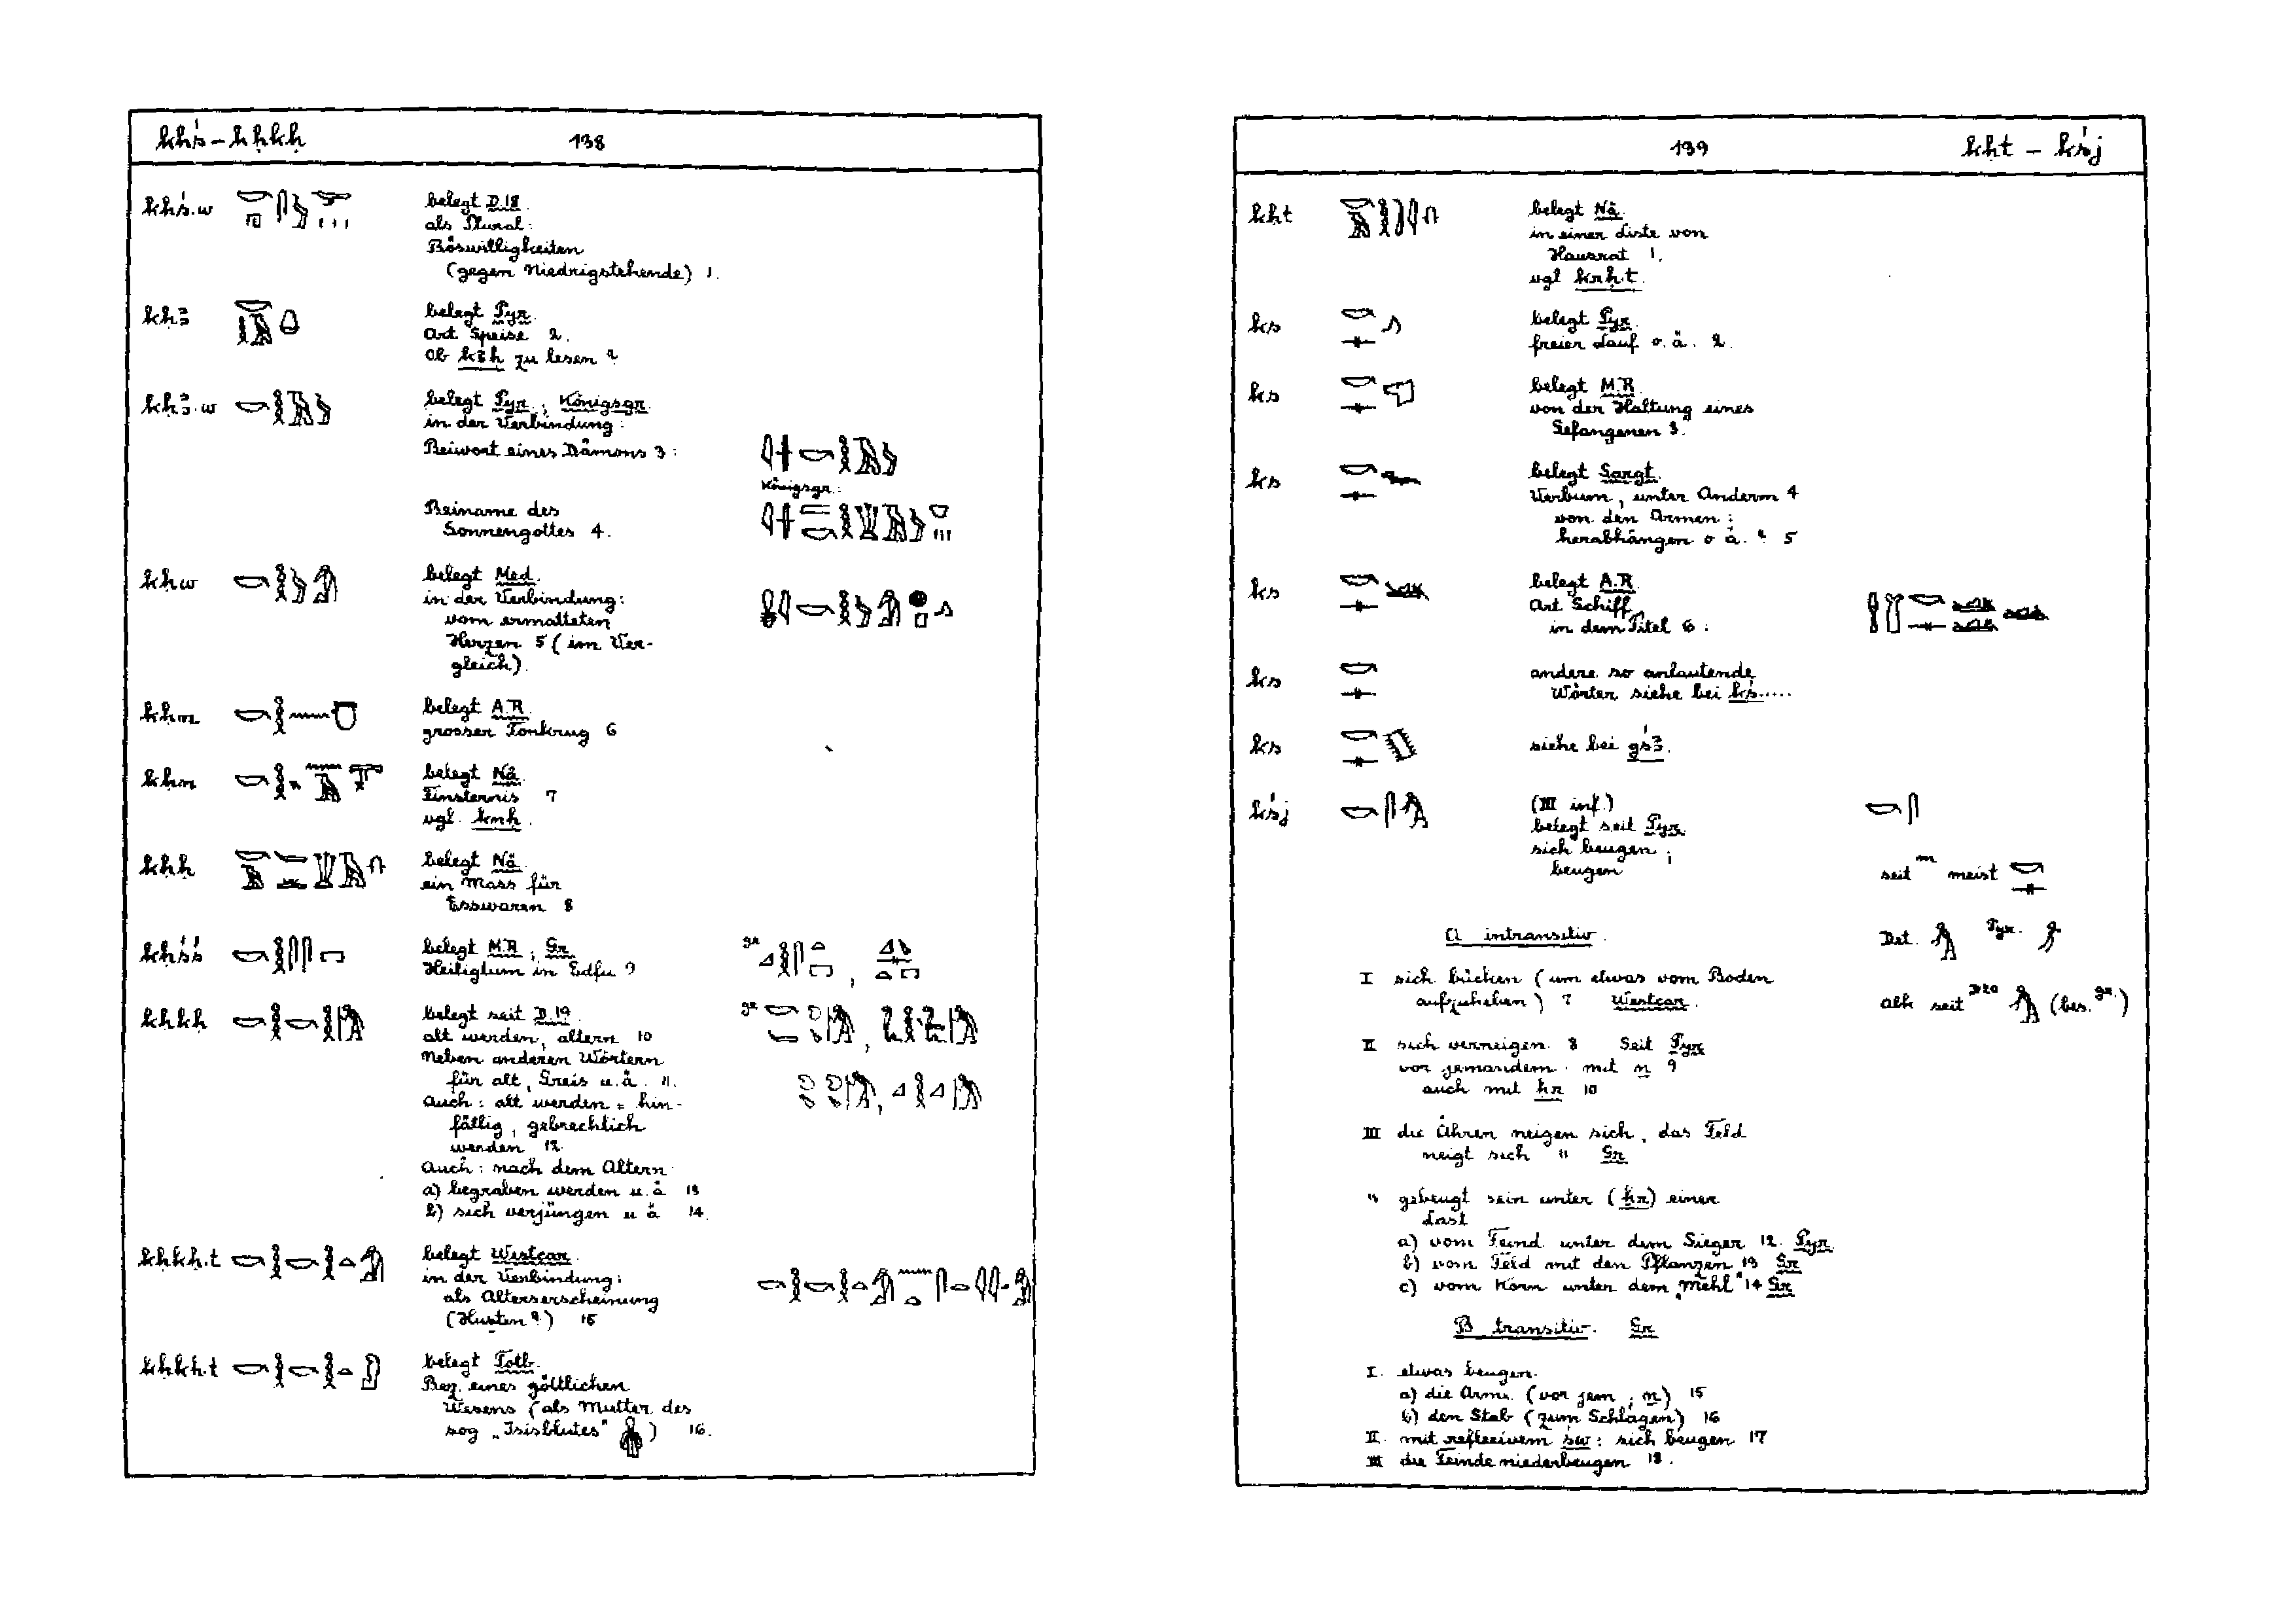 khś – kḥkḥ 138
khś.w belegt D.18.
als Plural:
Böswilligkeiten
(gegen Niedrigstehende) 1.
kḥꜣ belegt Pyr.
Art Speise 2.
Ob kꜣḥ zu lesen?
kḥꜣ.w belegt Pyr.; Königsgr.
in der Verbindung:
Beiwort eines Dämons 3:
Königsgr.:
Beiname des
Sonnengottes 4.
kḥw belegt Med.
in der Verbindung:
vom ermatteten
Herzen 5 (im Ver-
gleich).
kḥn belegt A.R.
grosser Tonkrug 6
kḥn belegt Nä.
Finsternis 7
vgl. knḥ.
kḥḥ belegt Nä.
ein Mass für
Esswaren 8
kḥśś belegt M.R.; Gr.
Heiligtum in Edfu 9
gr.
kḥkḥ belegt seit D.19.
alt werden, altern 10
Neben anderen Wörtern
für alt, Greis u.ä. 11.
Auch: alt werden = hin-
fällig, gebrechlich
werden 12.
Auch: nach dem Altern
a) begraben werden u.ä 13
b) sich verjüngen u ä 14.
gr
kḥkḥ.t belegt Westcar.
in der Verbindung:
als Alterserscheinung
(Husten?) 15
kḥkḥ.t belegt Totb.
Bez. eines göttlichen
Wesens (als Mutter des
sog „Isisblutes“ ) 16.
139 kḥt – kśj
kḥt belegt Nä.
in einer Liste von
Hausrat 1.
vgl krḥ.t.
ks belegt Pyr.
freier Lauf o.ä. 2.
ks belegt M.R.
von der Haltung eines
Gefangenen 3.
ks belegt Sargt.
Verbum, unter Anderm 4
von den Armen:
herabhängen o ä. ? 5
ks belegt A.R.
Art Schiff
in dem Titel 6:
ks andere so anlautende
Wörter siehe bei kś.....
ks siehe bei gśꜣ.
kśj (III inf.)
belegt seit Pyr.
sich beugen;
beugen
seit m meist
Det. Pyr.
abk seit D20 (bes. gr.)
A intransitiv.
I sich bücken (um etwas vom Boden
aufzuheben) 7 Westcar.
II sich verneigen. 8 Seit Pyr
vor jemandem: mit n 9
auch mit ḫr 10
III die Ähren neigen sich, das Feld
neigt sich 11 Gr
" gebeugt sein unter (ẖr) einer
Last
a) vom Feind unter dem Sieger 12. Pyr.
b) vom Feld mit den Pflanzen 13 Gr
c) vom Korn unter dem „Mehl“ 14 Gr
B transitiv. Gr
I. etwas beugen.
a) die Arme (vor jem; n) 15
b) den Stab (zum Schlagen) 16
II. mit reflexivem św: sich beugen 17
III die Feinde niederbeugen 18.